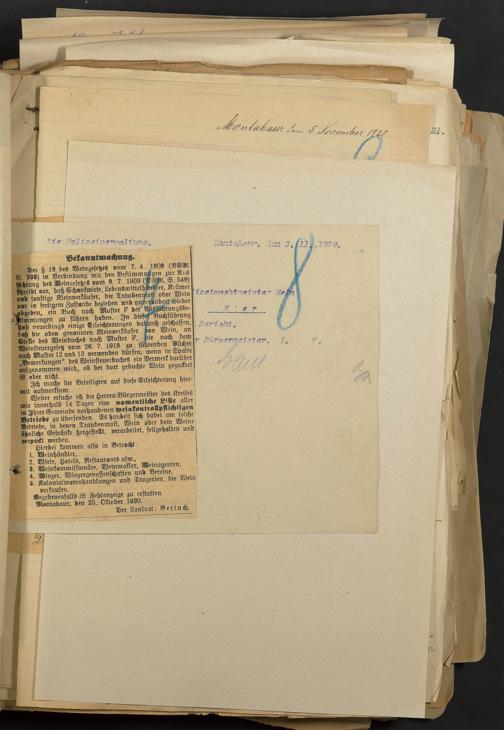 Montabaur den 5 November 1920
21.
Die Polizeiverwaltung.
Montabaur, den 3. 11. 1920.
Hier
Bericht.
Bürgermeister. I. V.
8
Bekanntmachung.
Der § 19 des Weingesetzes vom 7. 4. 1909 (RGBl.
S. 393) in Verbindung mit den Bestimmungen zur Aus
führung des Weingesetzes vom 9. 7. 1909 (RGBl. S. 549)
schreibt vor, daß Schankwirte, Lebensmittelhändler, Krämer
und sonstige Kleinverkäufer, die Traubenmost oder Wein
nur in fertigem Zustande beziehen und unverändert wieder
abgeben, ein Buch nach Muster F der Ausführungsbe-
stimmungen zu führen haben. In dieser Buchführung
sind neuerdings einige Erleichterungen dadurch geschaffen,
daß die oben genannten Kleinverkäufer von Wein, an
Stelle des Weinbuchs nach Muster F, die nach dem
Weinsteuergesetz vom 26. 7. 1918 zu führenden Bücher
nach Muster 12 und 13 verwenden dürfen, wenn in Spalte
„Bemerkungen" des Weinsteuerbuches ein Vermerk darüber
aufgenommen wird, ob der dort gebuchte Wein gezuckert
ist oder nicht.
Ich mache die Beteiligten auf diese Erleichterung hier-
mit aufmerksam.
Weiter ersuche ich die Herren Bürgermeister des Kreises
mir innerhalb 14 Tagen eine namentliche Liste aller
in Ihrer Gemeinde vorhandenen weinkontrollpflichtigen
Betriebe zu übersenden. Es handelt sich dabei um solche
Betriebe, in denen Traubenmost, Wein oder dem Weine
ähnliche Getränke hergestellt, verarbeitet, feilgehalten und
verpackt werden.
Hierbei kommen also in Betracht:
1. Weinhändler,
2. Wirte, Hotels, Restaurants usw.,
3. Weinkommissionäre, Weinmakler, Weinagenten,
4. Winzer, Winzergenossenschaften und Vereine,
5. Kolonialwarenhandlungen und Drogerien, die Wein
verkaufen.
Gegebenenfalls ist Fehlanzeige zu erstatten.
Montabaur, den 25. Oktober 1920.
Der Landrat: Bertuch.